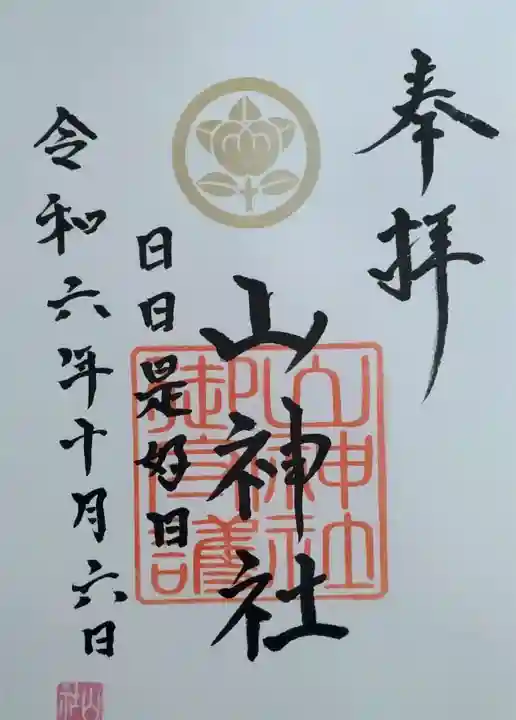 奉拝
山神社
日日是好日
令和六年十月六日
山神社